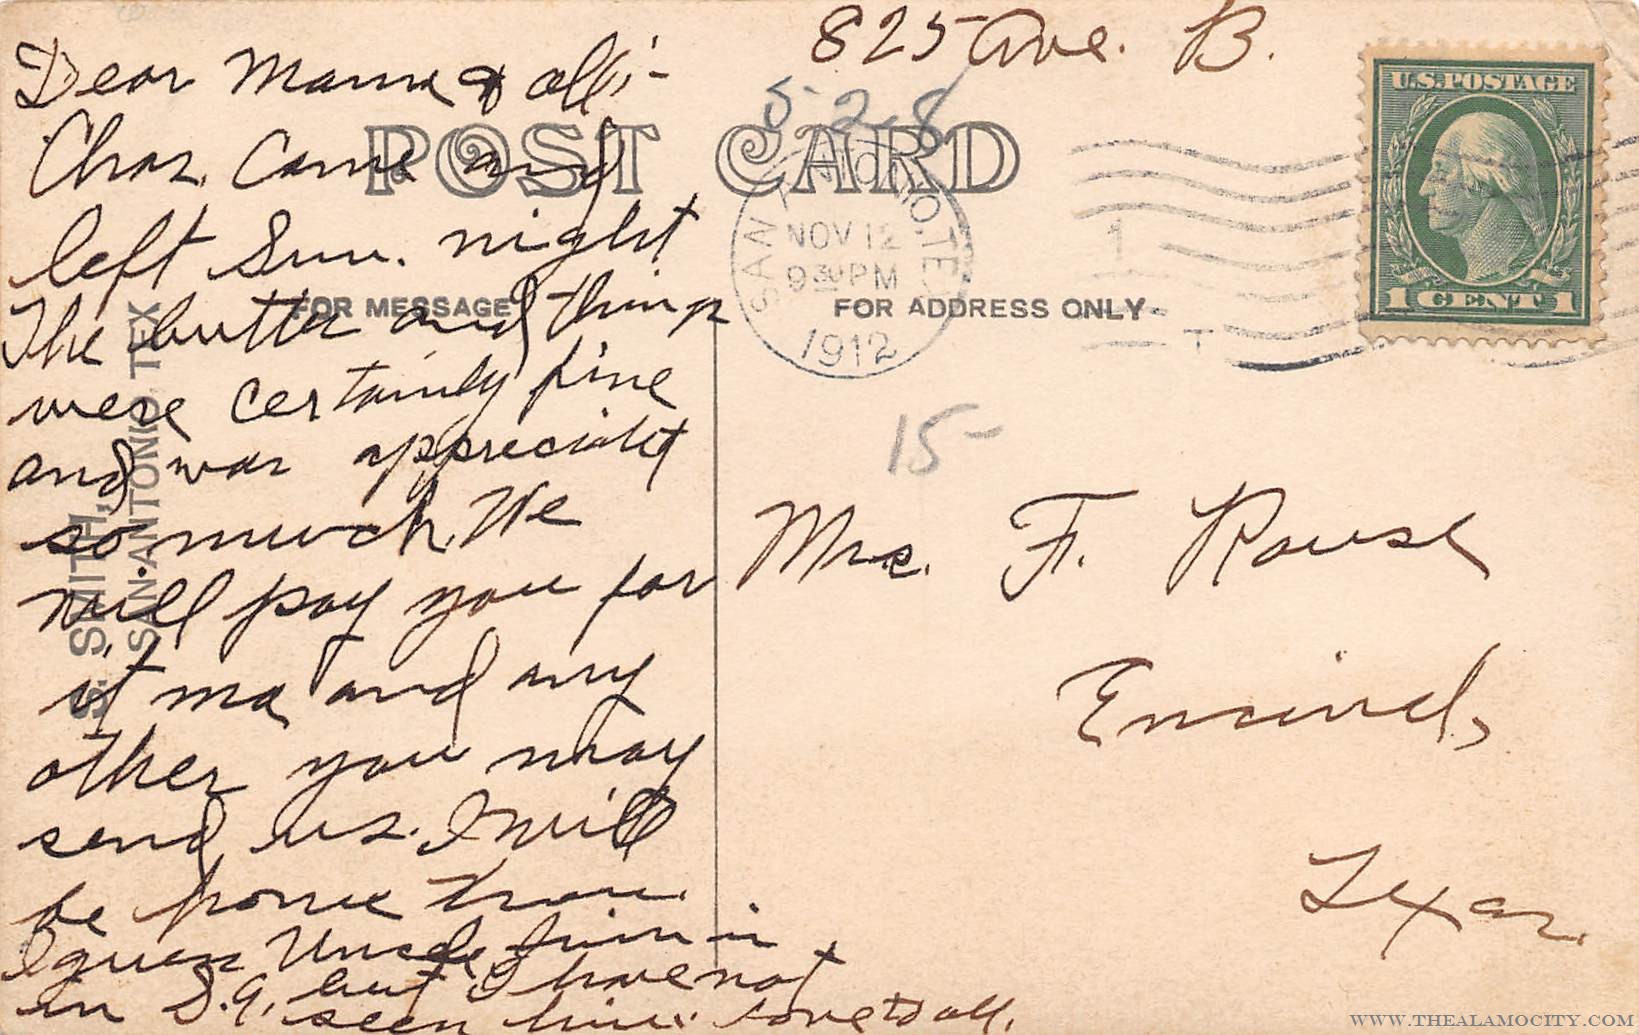 825 Ave. B.
Dear Mama & all:-
Chas. Came and
left Sun. night
The butter and things
were certainly fine
and was appreciated
so much. We
will pay you for
it ma, and any
other you may
send us. I will
be home Thau.
I guess Uncle Jim is
in S.A. but I have not
seen him. Love to all.
5-2-8
POST CARD
FOR MESSAGE
FOR ADDRESS ONLY
SAN ANTONIO, TEX
NOV 12
9 30 PM
1912
1
T
U.S. POSTAGE
1 CENT 1
15-
Mrs. F. Rouse
Encinal,
Texas.
S. SMITH,
SAN-ANTONIO, TEX
WWW.THEALAMOCITY.COM